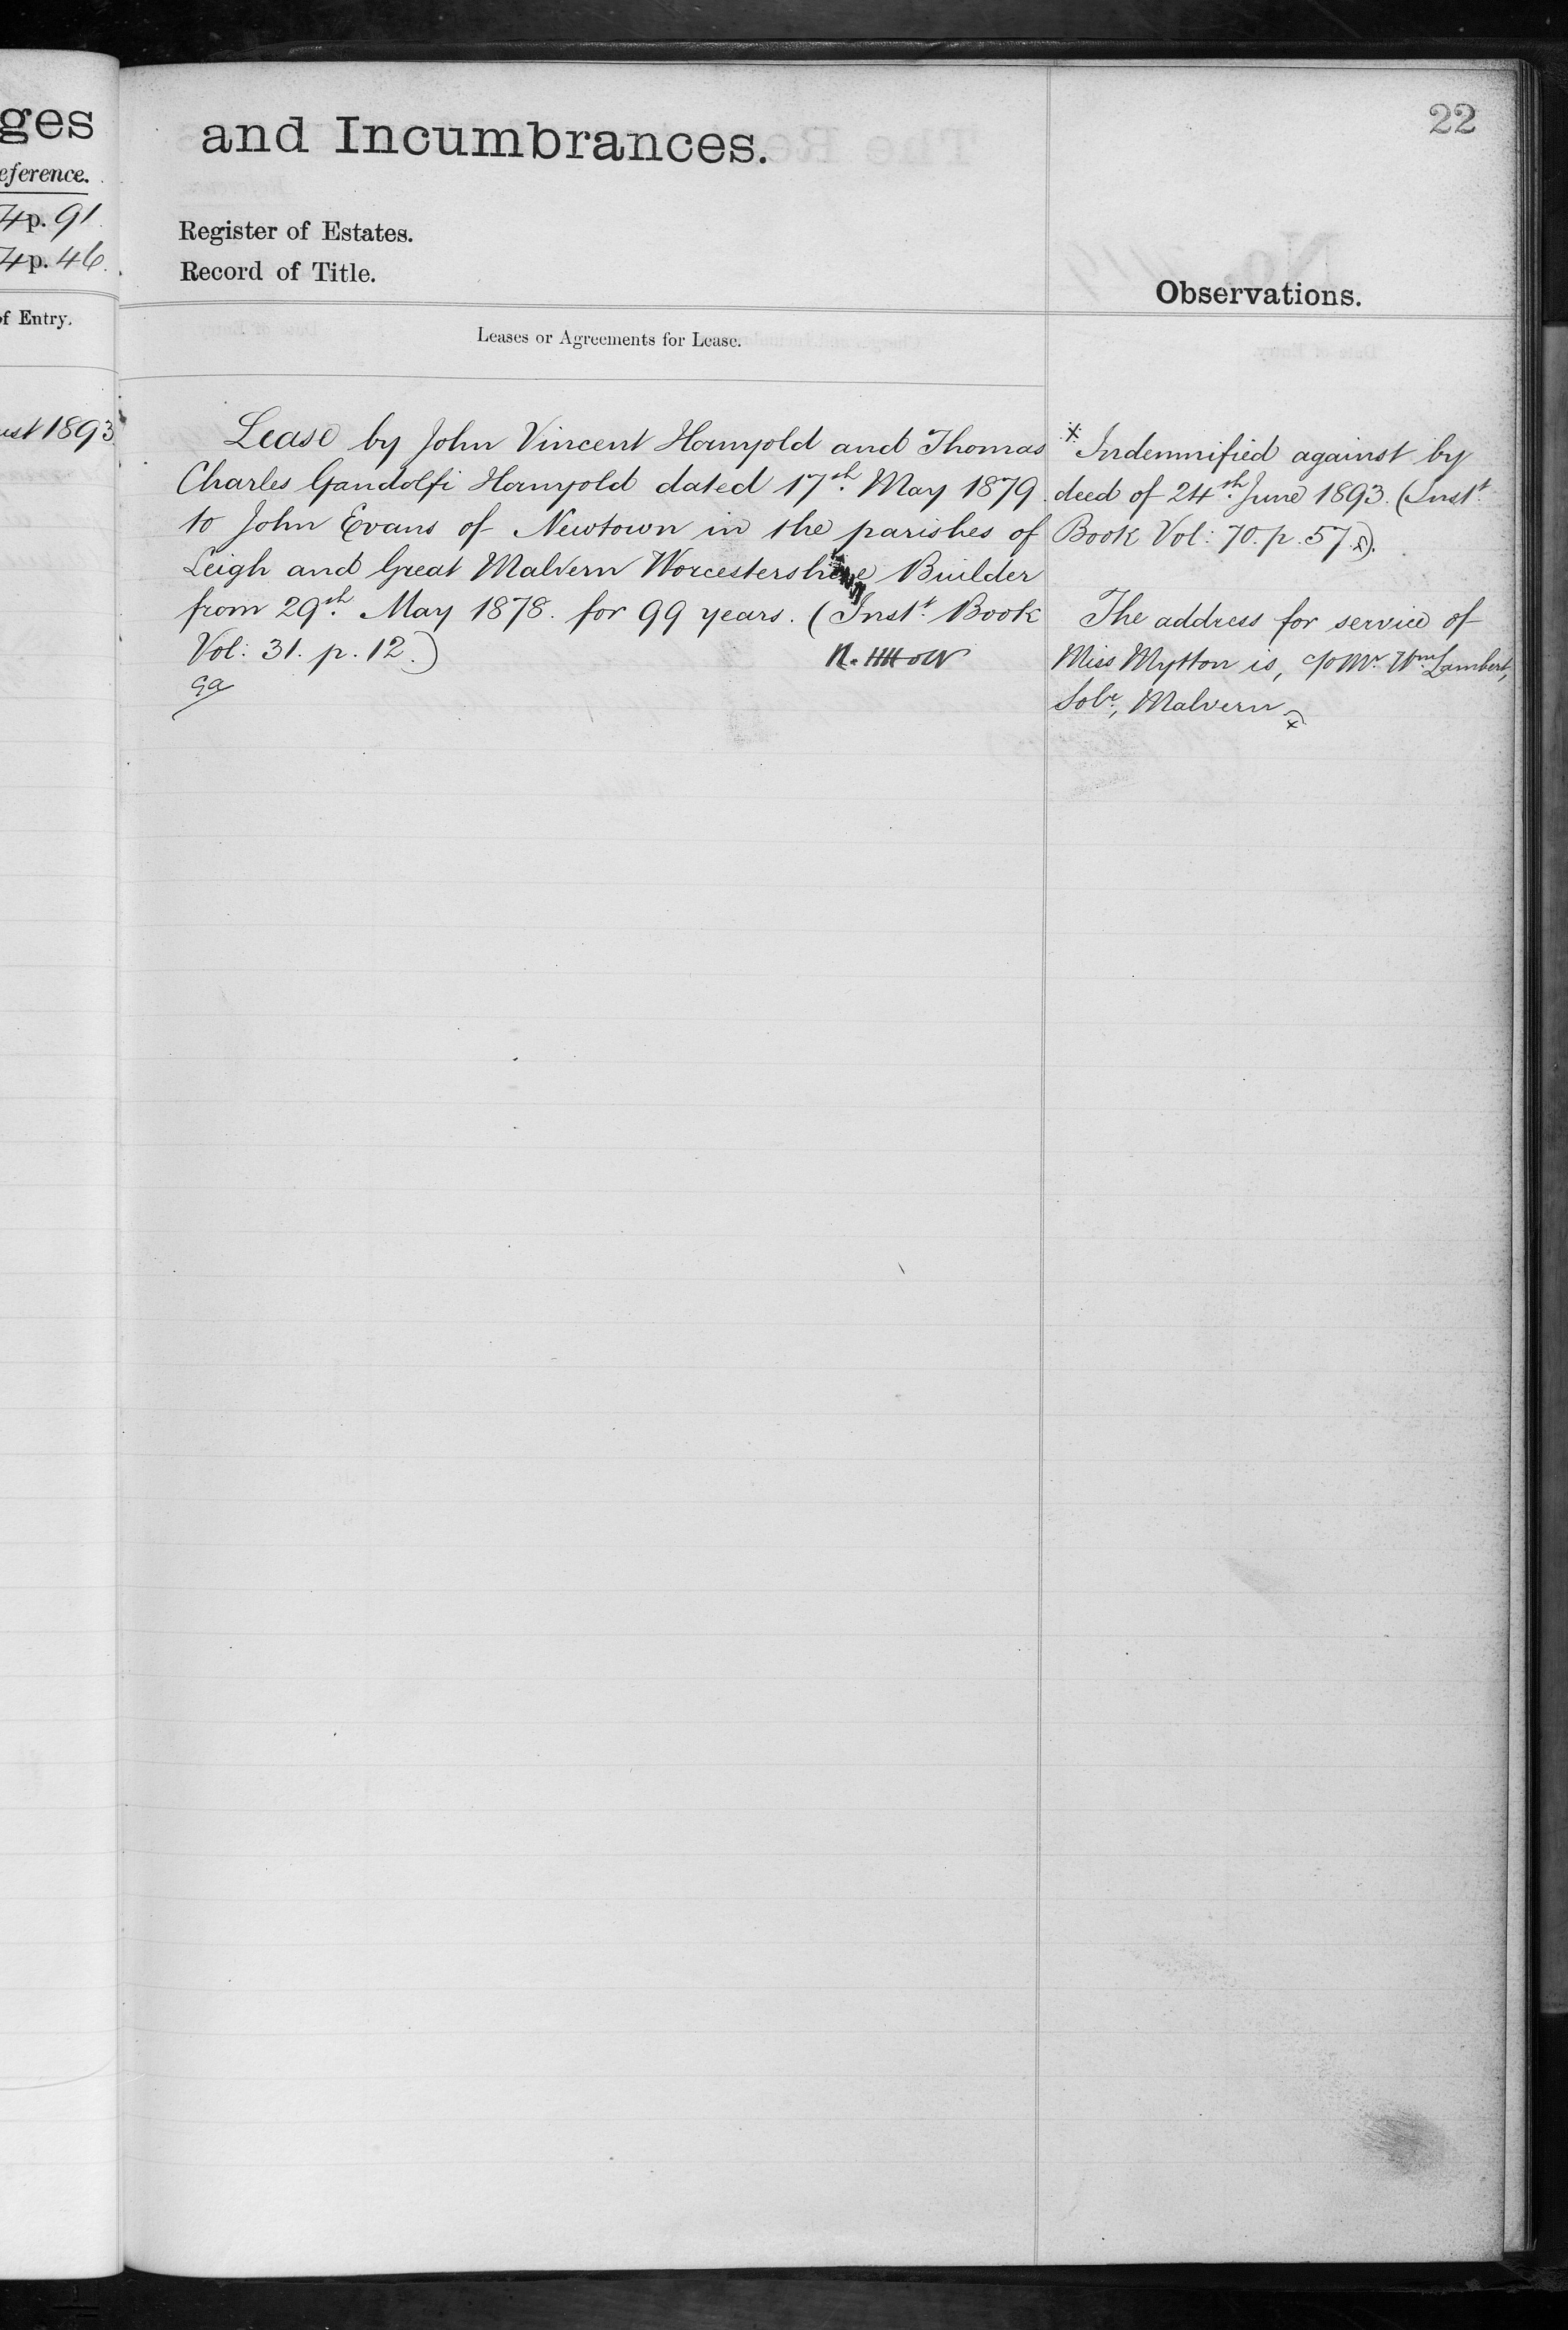 ges
eference.
4 p. 91.
4 p. 46.
of Entry.
ust 1893
and Incumbrances.
22
Register of Estates.
Record of Title.
Observations.
Leases or Agreements for Lease.
Lease by John Vincent Hornyold and Thomas
Charles Gandolfi Hornyold dated 17th. May 1879.
to John Evans of Newtown in the parishes of
Leigh and Great Malvern Worcestershire Builder
from 29th. May 1878. for 99 years. (Inst. Book
Vol: 31. p. 12.)
x Indemnified against by
deed of 24th. June 1893. (Inst.
Book Vol: 70. p. 57.).
The address for service of
Miss Mytton is, c/o Mr. Wm. Lambert,
Solr., Malvern